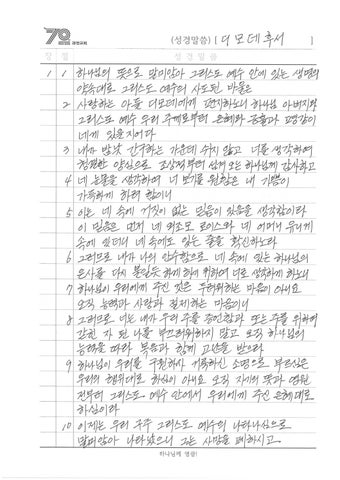 70 광명교회
(성경말씀) [ 디모데후서 ]
장 절 성경말씀
1 1 하나님의 뜻으로 말미암아 그리스도 예수 안에 있는 생명의
약속대로 그리스도 예수의 사도된 바울은
2 사랑하는 아들 디모데에게 편지하노니 하나님 아버지와
그리스도 예수 우리 주께로부터 은혜와 긍휼과 평강이
네게 있을지어다
3 내가 밤낮 간구하는 가운데 쉬지 않고 너를 생각하여
청결한 양심으로 조상적부터 섬겨 오는 하나님께 감사하고
4 네 눈물을 생각하여 너 보기를 원함은 내 기쁨이
가득하게 하려 함이니
5 이는 네 속에 거짓이 없는 믿음이 있음을 생각함이라
이 믿음은 먼저 네 외조모 로이스와 네 어머니 유니게
속에 있더니 네 속에도 있는 줄을 확신하노라
6 그러므로 내가 나의 안수함으로 네 속에 있는 하나님의
은사를 다시 불일듯 하게 하기 위하여 너로 생각하게 하노니
7 하나님이 우리에게 주신 것은 두려워하는 마음이 아니요
오직 능력과 사랑과 절제하는 마음이니
8 그러므로 너는 내가 우리 주를 증언함과 또는 주를 위하여
갇힌 자 된 나를 부끄러워하지 말고 오직 하나님의
능력을 따라 복음과 함께 고난을 받으라
9 하나님이 우리를 구원하사 거룩하신 소명으로 부르심은
우리의 행위대로 하심이 아니요 오직 자기의 뜻과 영원
전부터 그리스도 예수 안에서 우리에게 주신 은혜대로
하심이라
10 이제는 우리 구주 그리스도 예수의 나타나심으로
말미암아 나타났으니 그는 사망을 폐하시고
하나님께 영광!